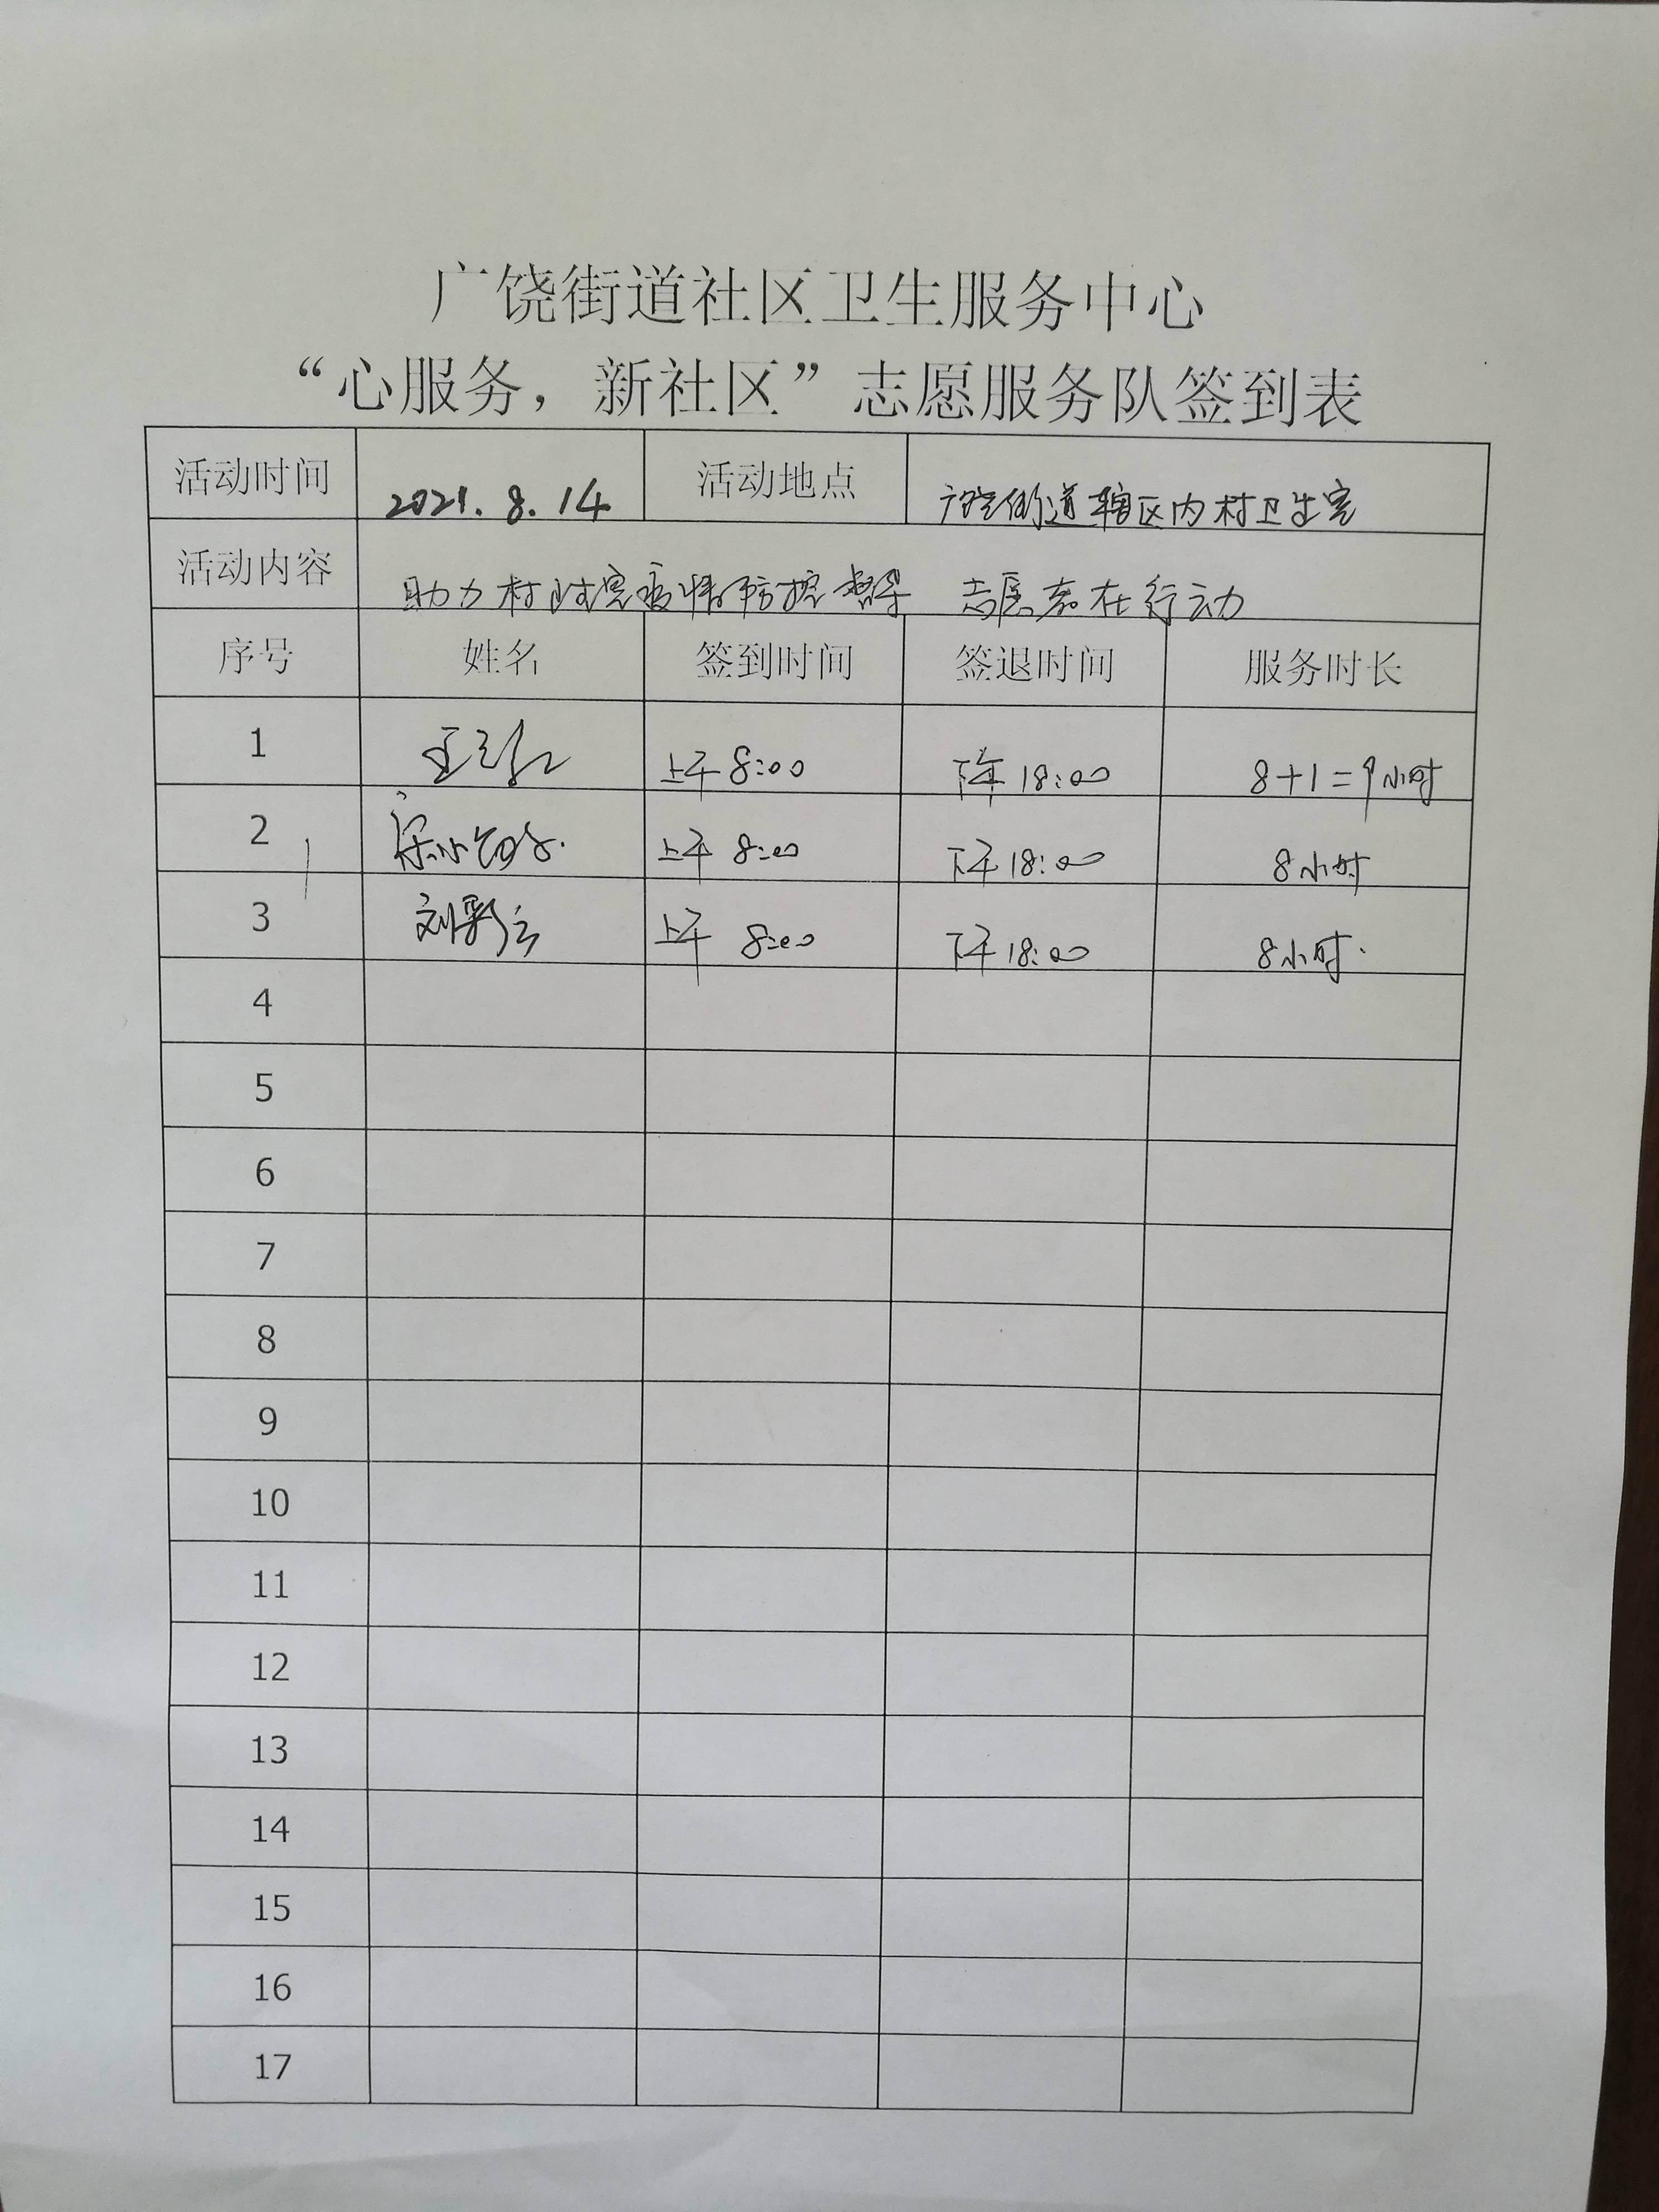 广饶街道社区卫生服务中心
“心服务，新社区”志愿服务队签到表
活动时间 2021.8.14 活动地点 广饶街道辖区内村卫生室
活动内容 助力村 室疫情防控督导 志愿者在行动
序号 姓名 签到时间 签退时间 服务时长
1 上午 8:00 下午 18:00 8+1=9小时
2 上午 8:00 下午 18:00 8小时
3 刘彩云 上午 8:00 下午 18:00 8小时.
4
5
6
7
8
9
10
11
12
13
14
15
16
17